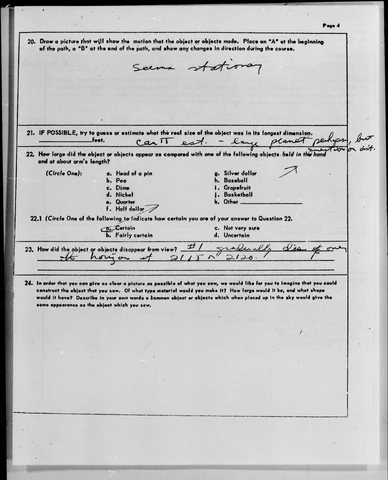 Page 4
20. Draw a picture that will show the motion that the object or objects made. Place an "A" at the beginning
of the path, a "B" at the end of the path, and show any changes in direction during the course.
Seems stationary
21. IF POSSIBLE, try to guess or estimate what the real size of the object was in its longest dimension.
feet. can't est. - large planet perhaps, but
22. How large did the object or objects appear as compared with one of the following objects held in the hand
and at about arm's length?
(Circle One): a. Head of a pin g. Silver dollar
b. Pea h. Baseball
c. Dime i. Grapefruit
d. Nickel j. Basketball
e. Quarter k. Other
f. Half dollar
22.1 (Circle One of the following to indicate how certain you are of your answer to Question 22.
a. Certain c. Not very sure
b. Fairly certain d. Uncertain
23. How did the object or objects disappear from view? #1 gradually over
the horizon at 2115 2120.
24. In order that you can give as clear a picture as possible of what you saw, we would like for you to imagine that you could
construct the object that you saw. Of what type material would you make it? How large would it be, and what shape
would it have? Describe in your own words a common object or objects which when placed up in the sky would give the
same appearance as the object which you saw.